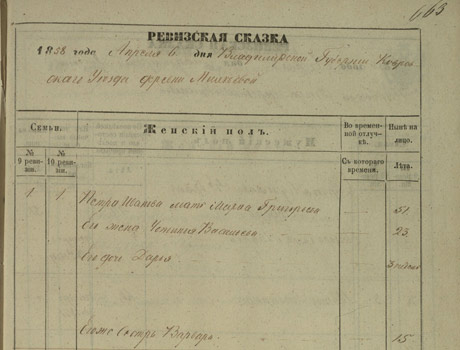 663
РЕВИЗСКАЯ СКАЗКА
1858 года Апреля 6 дня Владимирской Губернiи Ковров-
скаго Уезда деревни
Семьи.
Женскiй полъ.
Во времен-
ной отлуч-
кѣ.
Нынѣ на
лицо.
№
9 реви-
зiи.
№
10 реви-
зiи.
Съ котораго
времени.
Лѣта.
1 1 Петра Иванова мать Марья Григорьева 51
Его жена Васильева 23
Его дочь Дарья 3 недели
Его же сестра Варвара 15